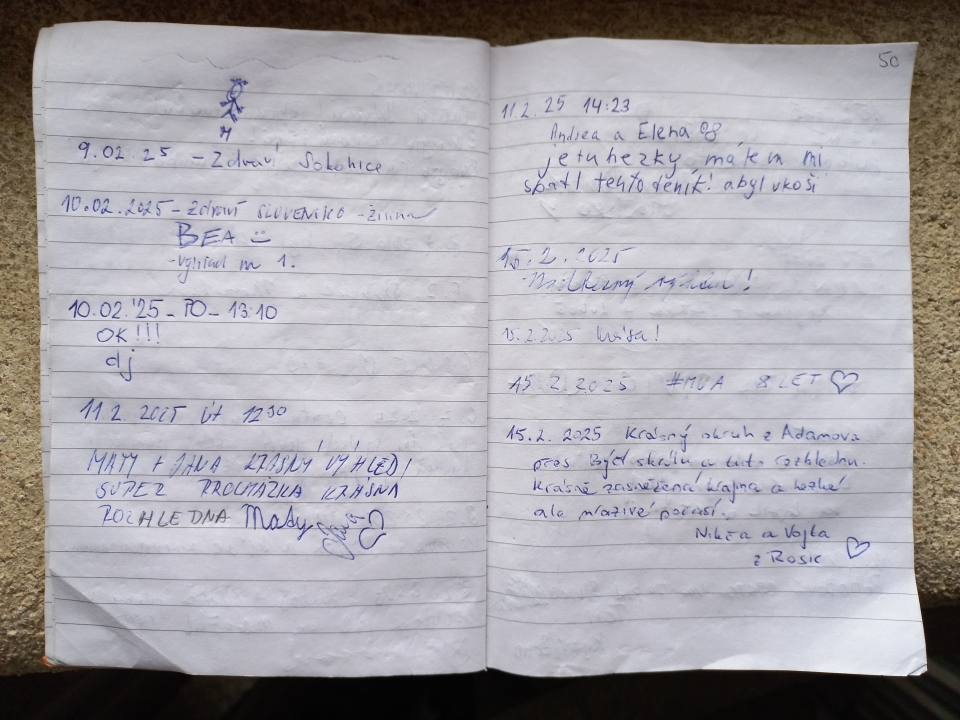 9.02 25 - Zdraví Sokolnice
10.02.2025 - Zdraví SLOVENSKO - Žilina
BEA
- Výhled m 1.
10.02.'25 - PO - 13:10
OK!!!
dj
11.2. 2025 ÚT 12 30
MATY + JANA KRÁSNÝ VÝHLED!
SUPER PROCHÁZKA KRÁSNÁ
ROZHLEDNA Maty Jana
50
11.2. 25 14:23
Andrea a Elena
je tu hezky málem mi
spatl tento deník! abyl vkoši
15.2.2025
- Nádherný výhled!
15.2.2025 krása!
15.2.2025 #MUA 8 LET
15.2. 2025 Krásný okruh z Adamova
přes Býčí skálu a tuto rozhlednu.
Krásně zasněžená krajina a hezké
ale mrazivé počasí.
a Vojta
z Rosic